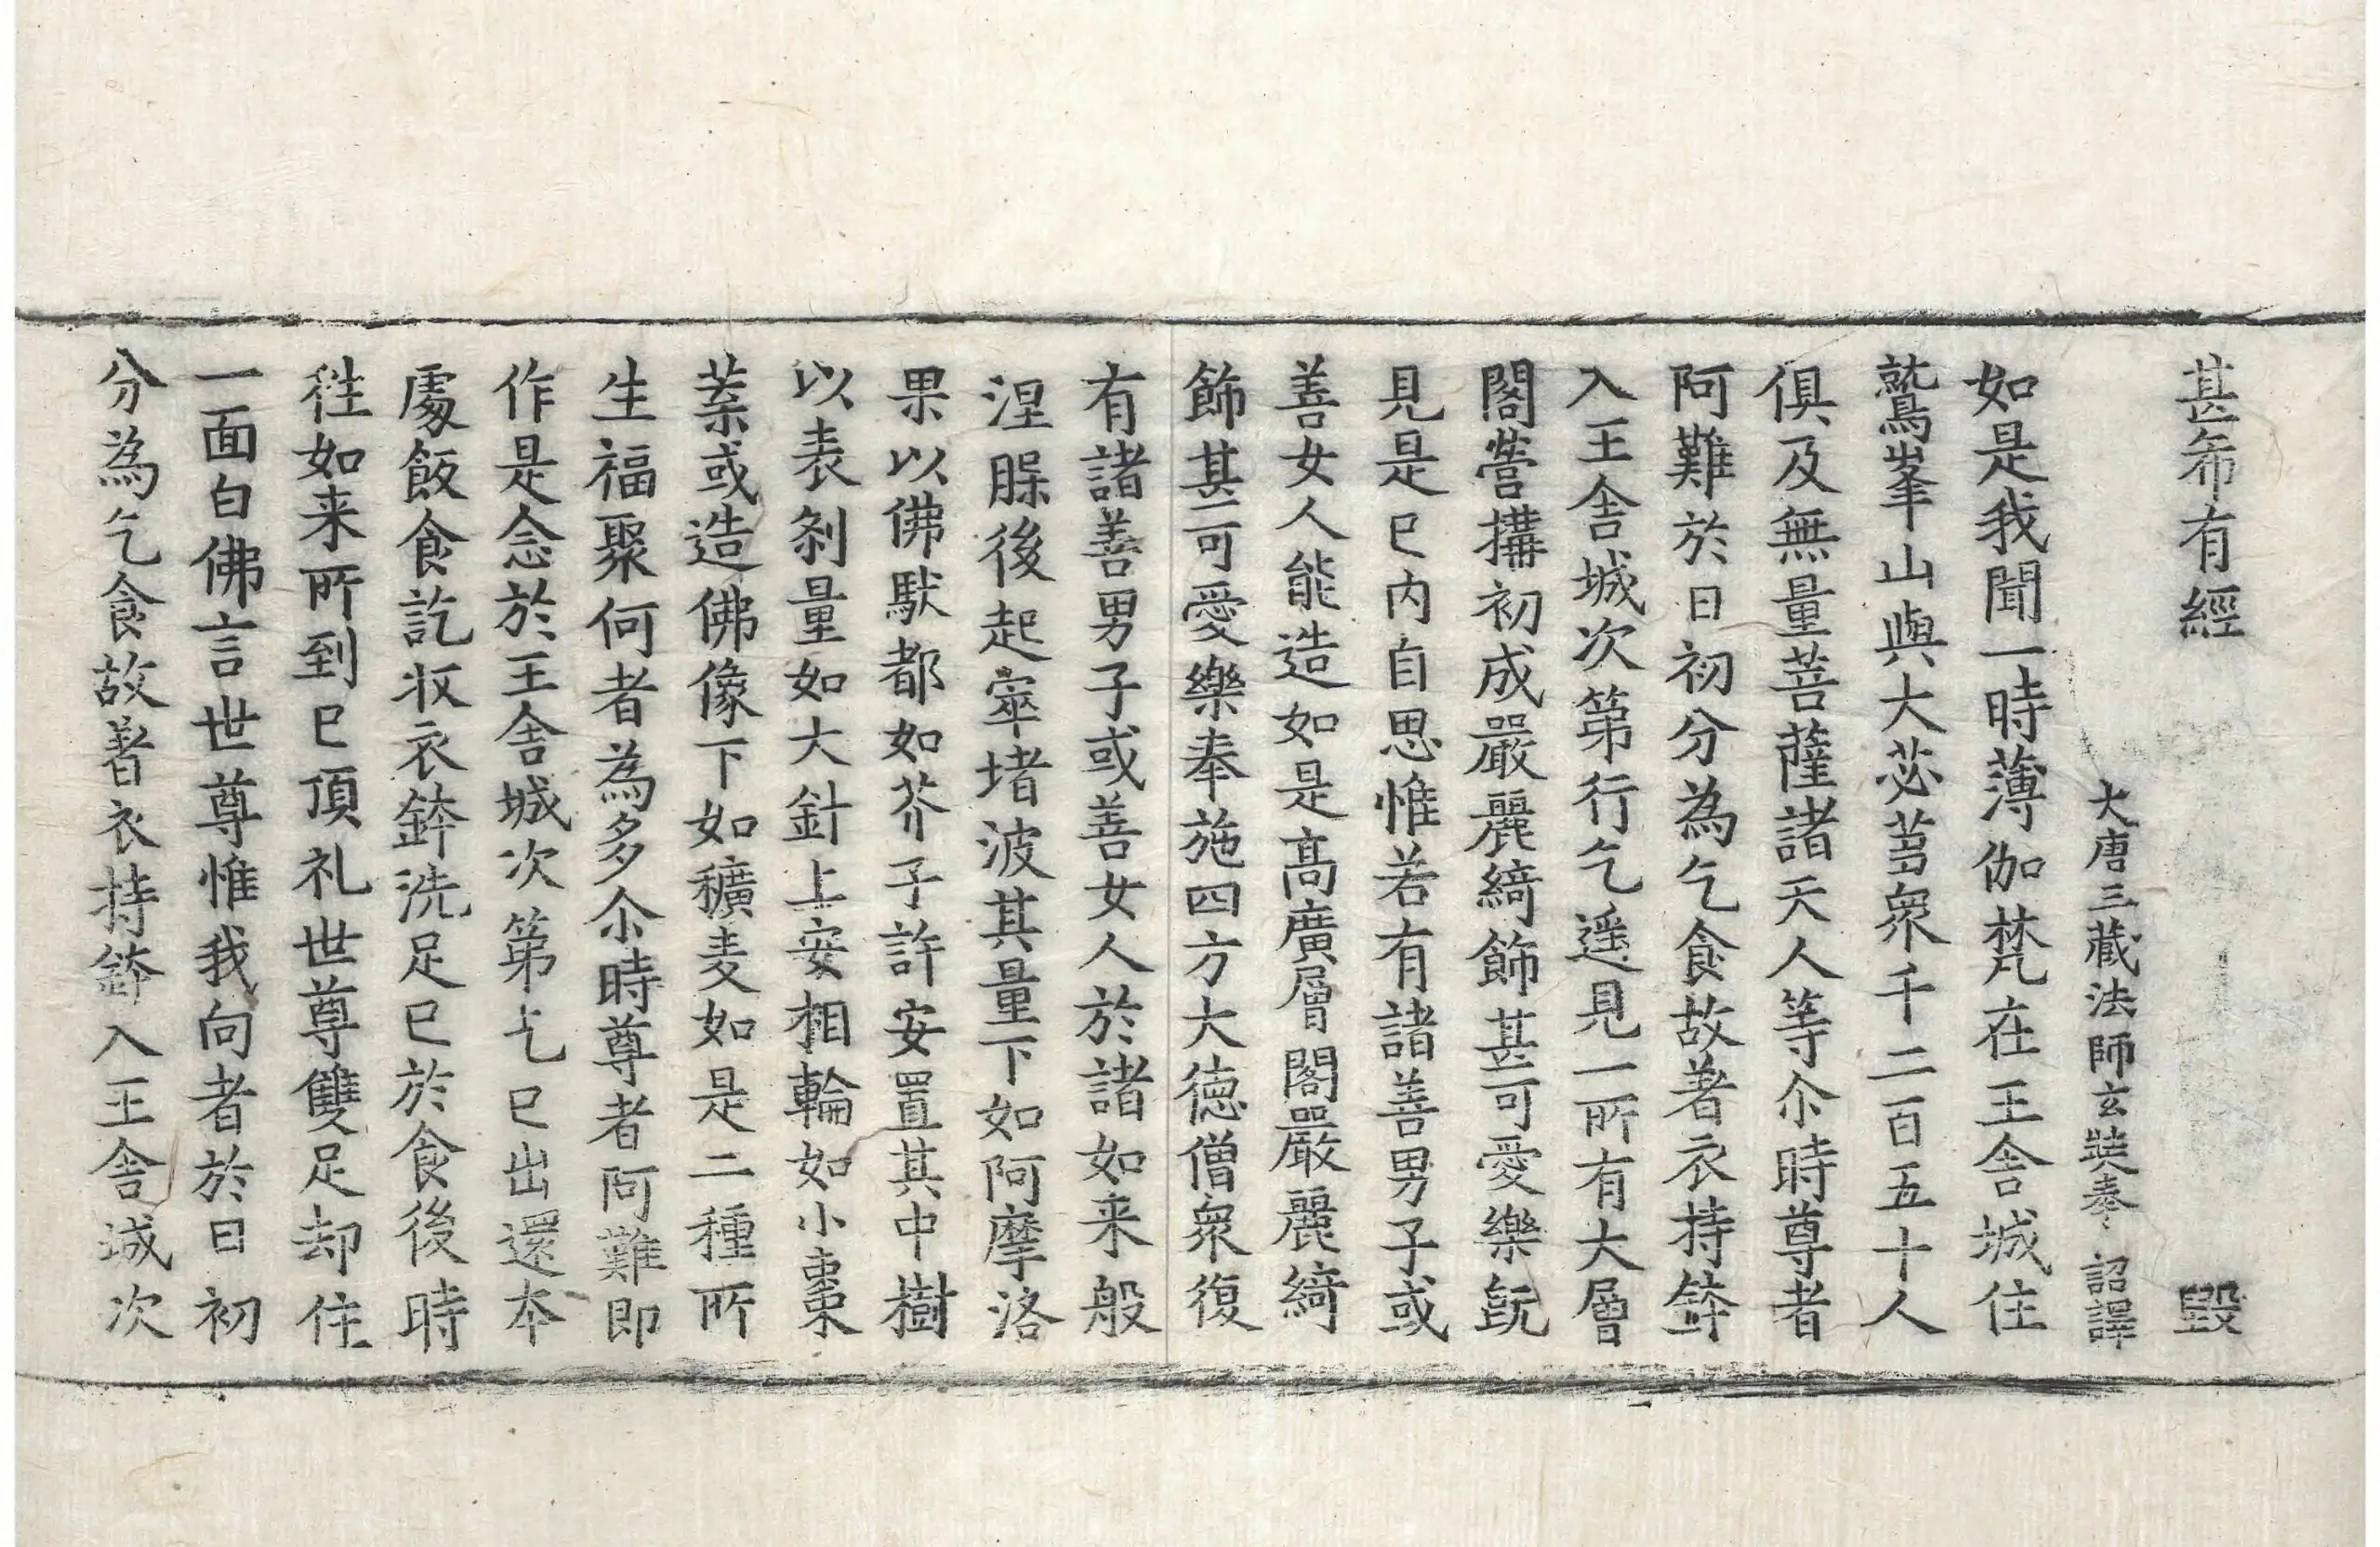 甚希有經 毀
大唐三藏法師玄奘奉 詔譯
如是我聞一時薄伽梵在王舍城住
鷲峯山與大苾芻衆千二百五十人
俱及無量菩薩諸天人等尒時尊者
阿難於日初分為乞食故著衣持鉢
入王舍城次第行乞遥見一所有大層
閣營搆初成嚴麗綺飾甚可愛樂旣
見是已内自思惟若有諸善男子或
善女人能造如是高廣層閣嚴麗綺
飾甚可愛樂奉施四方大德僧衆復
有諸善男子或善女人於諸如来般
涅膜後起窣堵波其量下如阿摩洛
果以佛馱都如芥子許安置其中樹
以表刹量如大針上安相輪如小棗
葉或造佛像下如穬麦如是二種所
生福聚何者為多尒時尊者阿難即
作是念於王舍城次第乞已出還本
處飯食訖收衣鉢洗足已於食後時
往如来所到已頂礼世尊雙足却住
一面白佛言世尊惟我向者於日初
分為乞食故著衣持鉢入王舍城次